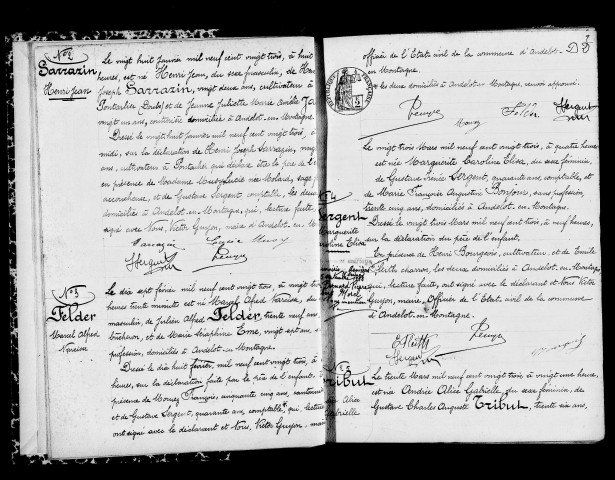 No 2
Sarrazin
Henri Jean
Le vingt huit Janvier mil neuf cent vingt trois, à huit
heures, est né Henri Jean, du sexe masculin, de Henri
Joseph Sarrazin, vingt deux ans, cultivateur à
Pontarlier (Doubs) et de Jeanne Juliette Marie Amélie
vingt un ans, couturière domiciliée à Andelot en Montagne.
Dressé le vingt huit janvier mil neuf cent vingt trois, à
midi, sur la déclaration de Henri Joseph Sarrazin, vingt
ans, cultivateur à Pontarlier qui déclare être le père de l'
en présence de Madame Mury Lucie née Molard, sage
accoucheuse, et de Gustave Sergent, comptable, les deux
domiciliés à Andelot en Montagne, qui, lecture faite
signé avec Nous, Victor Guyon, maire d'Andelot en M
Sarrazin Lucie Mury
Sergent
No 3
Felder
Marcel Alfred
Le dix est février mil neuf cent vingt trois, à vingt
heures trente minutes est né Marcel Alfred Narcisse, du
masculin, de Julien Alfred Felder, trente neuf ans
bûcheron, et de Marie Séraphine Eme, vingt sept ans
profession, domiciliés à Andelot en Montagne.
Dressé le dix huit février, mil neuf cent vingt trois, à
heures, sur la déclaration faite par le père de l'enfant,
présence de Mourey François, cinquante cinq ans, cantonnier
et de Gustave Sergent, quarante ans, comptable, qui, lecture
ont signé avec le déclarant et Nous, Victor Guyon, maire
7
officier de l'Etat civil de la commune d'Andelot-
en Montagne.
les deux domiciliés à Andelot en Montagne, renvoi approuvé.
Felder Sergent
Mourey
No 4
Sergent
Marguerite
Caroline Elisa
Le vingt trois Mars mil neuf cent vingt trois, à quatre heures
est née Marguerite Caroline Elisa, du sexe féminin,
de Gustave Irénée Sergent, quarante ans, comptable, et
de Marie Françoise Augustine Bonjour, sans profession,
trente cinq ans, domiciliés à Andelot en Montagne.
Dressé le vingt trois Mars mil neuf cent vingt trois, à neuf heures,
sur la déclaration du père de l'enfant,
En présence de Henri Bourgeois, cultivateur, et de Emile
charron, les deux domiciliés à Andelot en Montagne,
qui, lecture faite, ont signé avec le déclarant et nous Victor
Guyon, maire, Officier de l'Etat civil de la commune
d'Andelot en Montagne.
Sergent
No 5
Tribut
Andrée Alice
Gabrielle
Le trente Mars mil neuf cent vingt trois, à vingt une heures,
est née Andrée Alice Gabrielle, du sexe féminin, de
Gustave Charles Auguste Tribut, trente six ans,